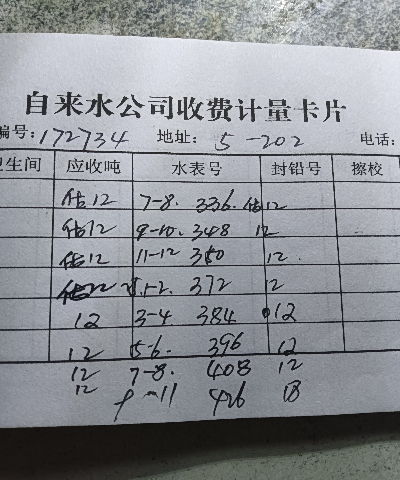 自来水公司收费计量卡片
编号: 172734 地址: 5-202 电话:
卫生间 应收吨 水表号 封铅号 擦校
估12 7-8. 336. 估12
估12 9-10. 348 12
估12 11-12 360 12.
估12 1-2. 372 12
12 3-4. 384 12
12 5-6. 396 12
12 7-8. 408 12
12 9-11 426 18